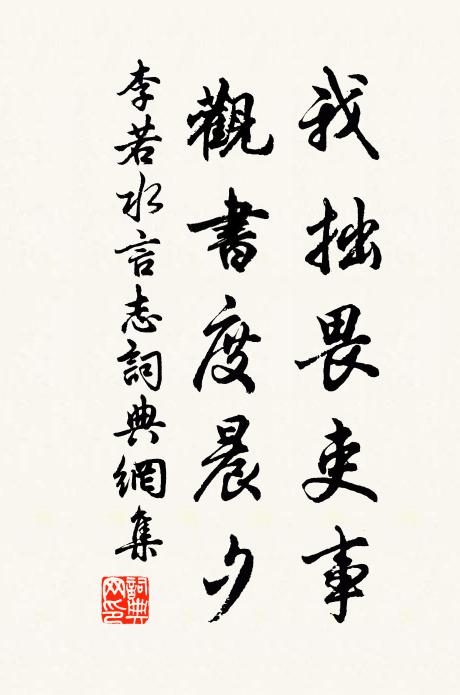 我拙畏吏事
觀書度晨夕
李若水言志詞典網集
詞典網印